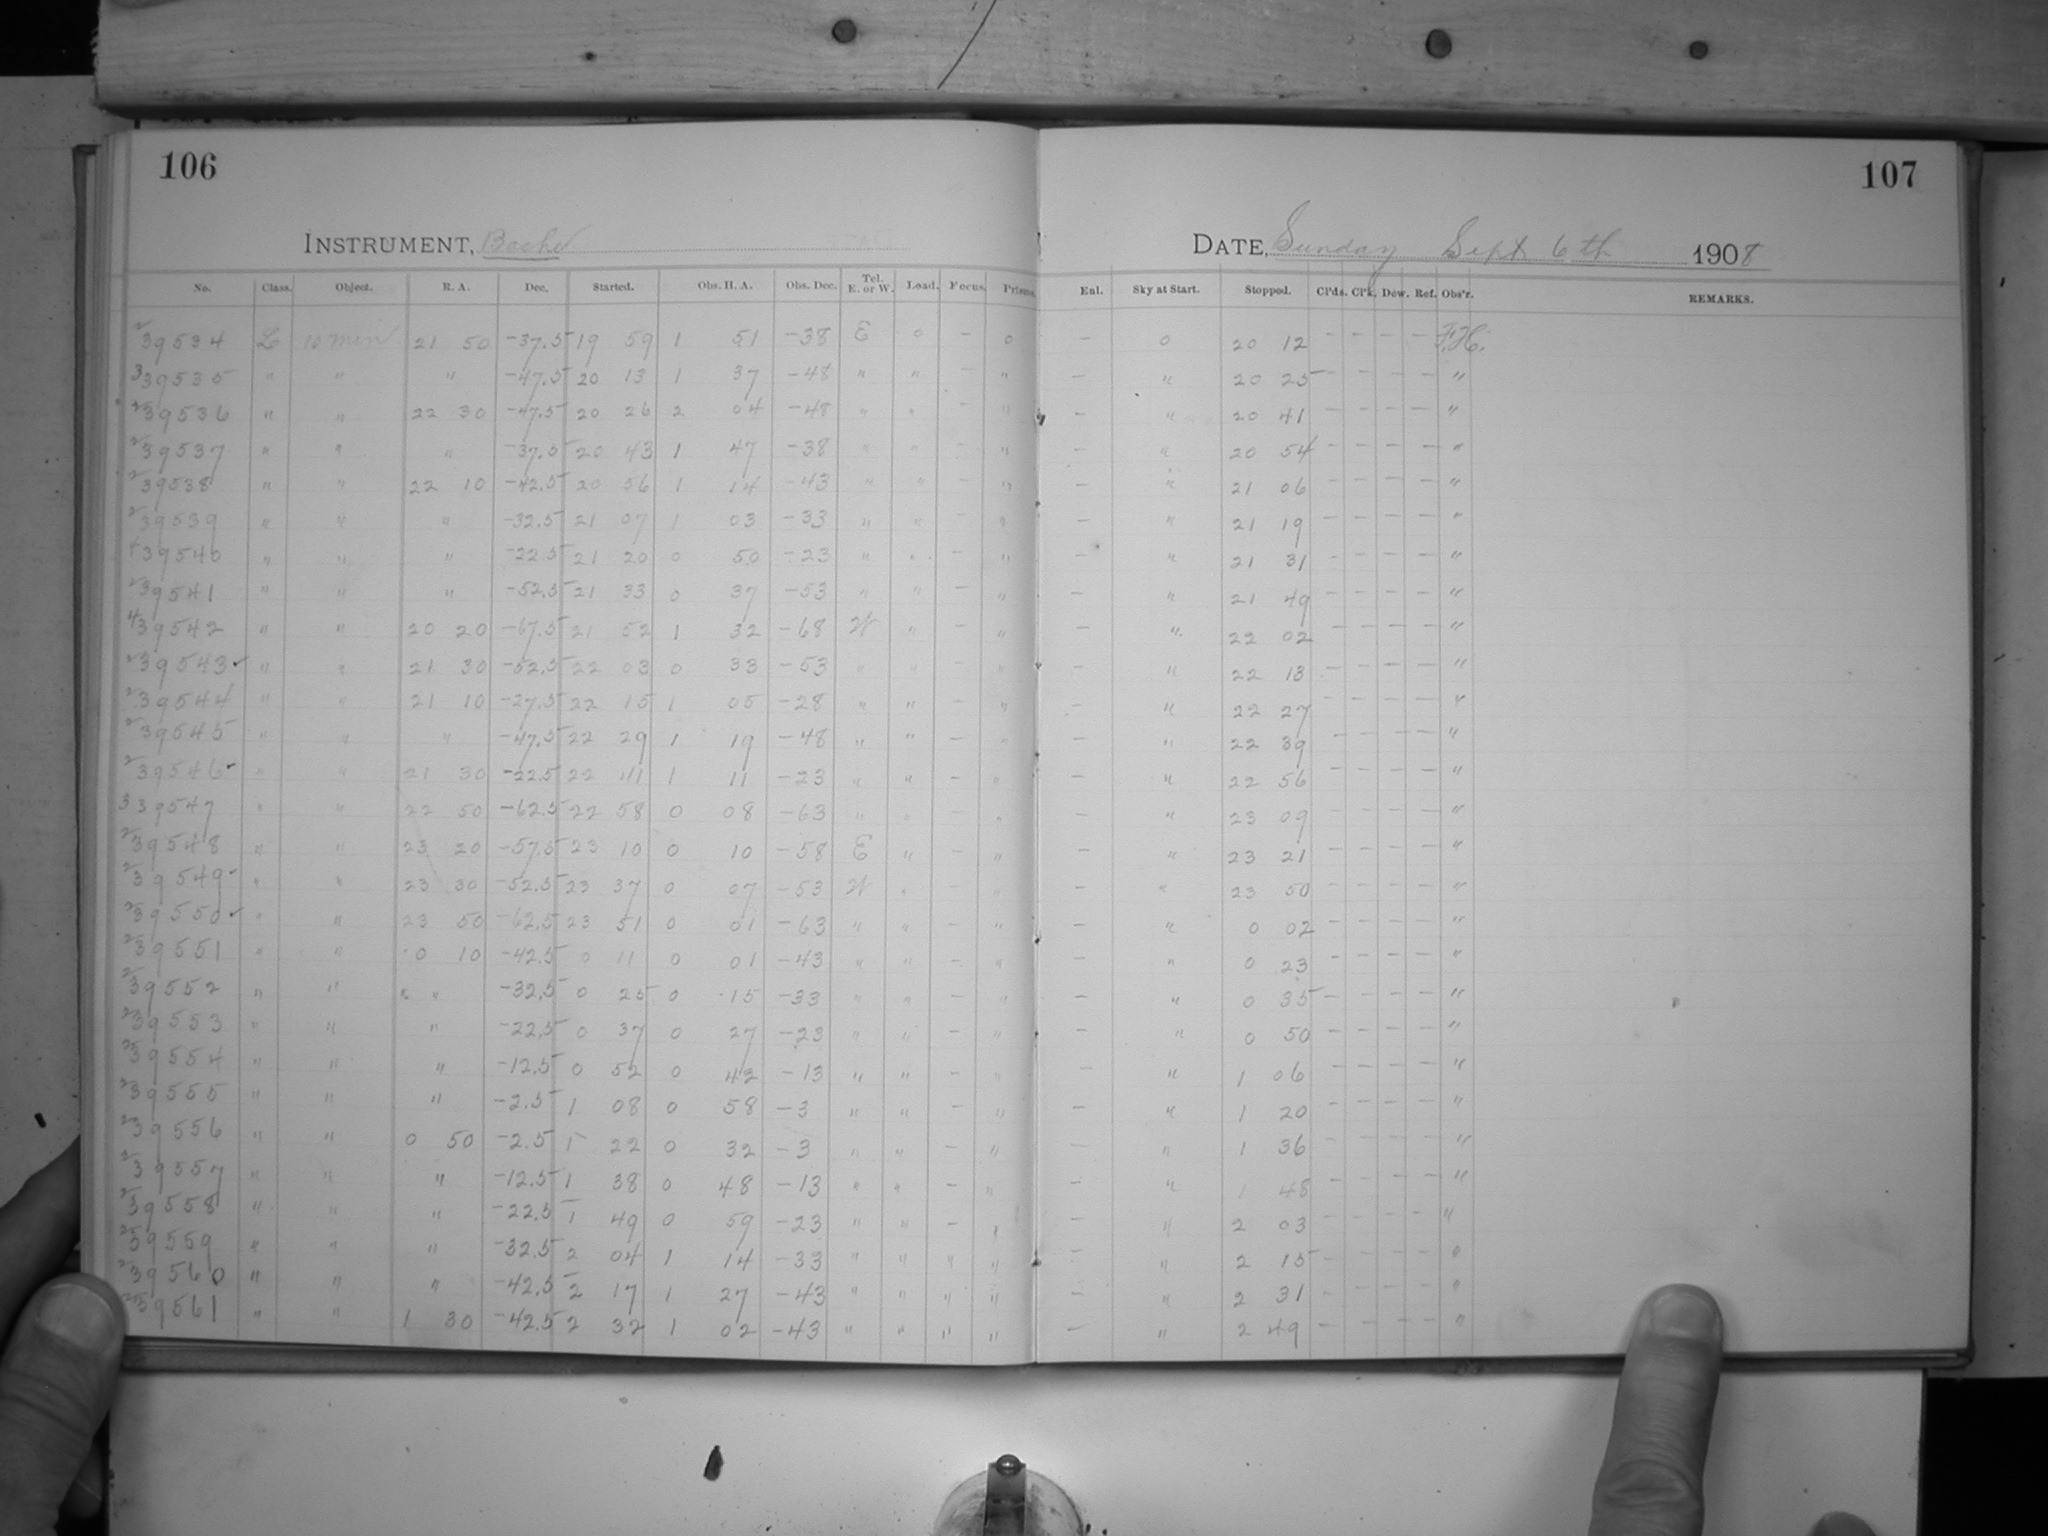 106
107
INSTRUMENT, Bache
DATE, Sunday Sept 6th 1908
No. Class. Object. R. A. Dec. Started. Obs. H. A. Obs. Dec. Tel. E. or W. Load. Focus. Prisms. Enl. Sky at Start. Stopped. Cl'ds. Cl'k. Dew. Ref. Obs'r. REMARKS.
2 39534 L 10 min 21 50 -37.5 19 59 1 51 -38 E 0 - 0 - 0 20 12 - - - - F.H.
3 39535 " " " -47.5 20 13 1 37 -48 " " - " - " 20 25 - - - - "
2 39536 " " 22 30 -47.5 20 26 2 04 -48 " " - " - " 20 41 - - - - "
2 39537 " " " -37.5 20 43 1 47 -38 " " - " - " 20 54 - - - - "
2 39538 " " 22 10 -42.5 20 56 1 14 -43 " " - " - " 21 06 - - - - "
2 39539 " " " -32.5 21 07 1 03 -33 " " - " - " 21 19 - - - - "
39540 " " " -22.5 21 20 0 50 -23 " " - " - " 21 31 - - - - "
2 39541 " " " -52.5 21 33 0 37 -53 " " - " - " 21 49 - - - - "
4 39542 " " 20 20 -67.5 21 52 1 32 -68 W " - " - " 22 02 - - - - "
2 39543 ✓ " " 21 30 -52.5 22 03 0 33 -53 " " - " - " 22 13 - - - - "
2 39544 " " 21 10 -27.5 22 15 1 05 -28 " " - " - " 22 27 - - - - "
2 39545 " " " -47.5 22 29 1 19 -48 " " - " - " 22 39 - - - - "
2 39546 ✓ " " 21 30 -22.5 22 41 1 11 -23 " " - " - " 22 56 - - - - "
3 39547 " " 22 50 -62.5 22 58 0 08 -63 " " - " - " 23 09 - - - - "
2 39548 " " 23 20 -57.5 23 10 0 10 -58 E " - " - " 23 21 - - - - "
2 39549 ✓ " " 23 30 -52.5 23 37 0 07 -53 W " - " - " 23 50 - - - - "
2 39550 ✓ " " 23 50 -62.5 23 51 0 01 -63 " " - " - " 0 02 - - - - "
2 39551 " " 0 10 -42.5 0 11 0 01 -43 " " - " - " 0 23 - - - - "
2 39552 " " " " -32.5 0 25 0 15 -33 " " - " - " 0 35 - - - - "
2 39553 " " " -22.5 0 37 0 27 -23 " " - " - " 0 50 - - - - "
2 39554 " " " -12.5 0 52 0 42 -13 " " - " - " 1 06 - - - - "
2 39555 " " " -2.5 1 08 0 58 -3 " " - " - " 1 20 - - - - "
2 39556 " " 0 50 -2.5 1 22 0 32 -3 " " - " - " 1 36 - - - - "
2 39557 " " " -12.5 1 38 0 48 -13 " " - " - " 1 48 - - - - "
2 39558 " " " -22.5 1 49 0 59 -23 " " - " - " 2 03 - - - - "
2 39559 " " " -32.5 2 04 1 14 -33 " " " " - " 2 15 - - - - "
2 39560 " " " -42.5 2 17 1 27 -43 " " " " - " 2 31 - - - - "
2 39561 " " 1 30 -42.5 2 32 1 02 -43 " " " " - " 2 49 - - - - "